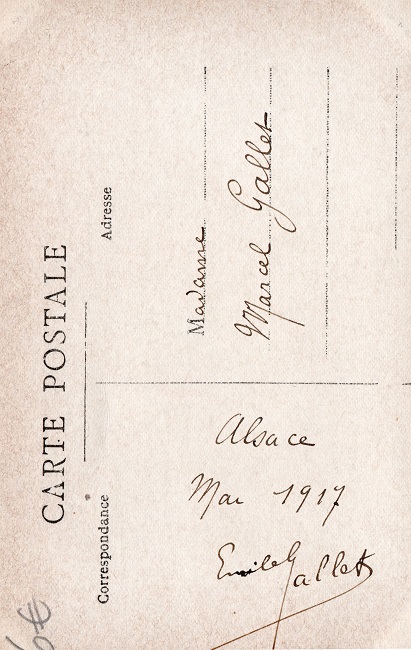 CARTE POSTALE
Correspondance
Adresse
Alsace
Mai 1917
Emile Gallet
Madame
Marcel Gallet
6€